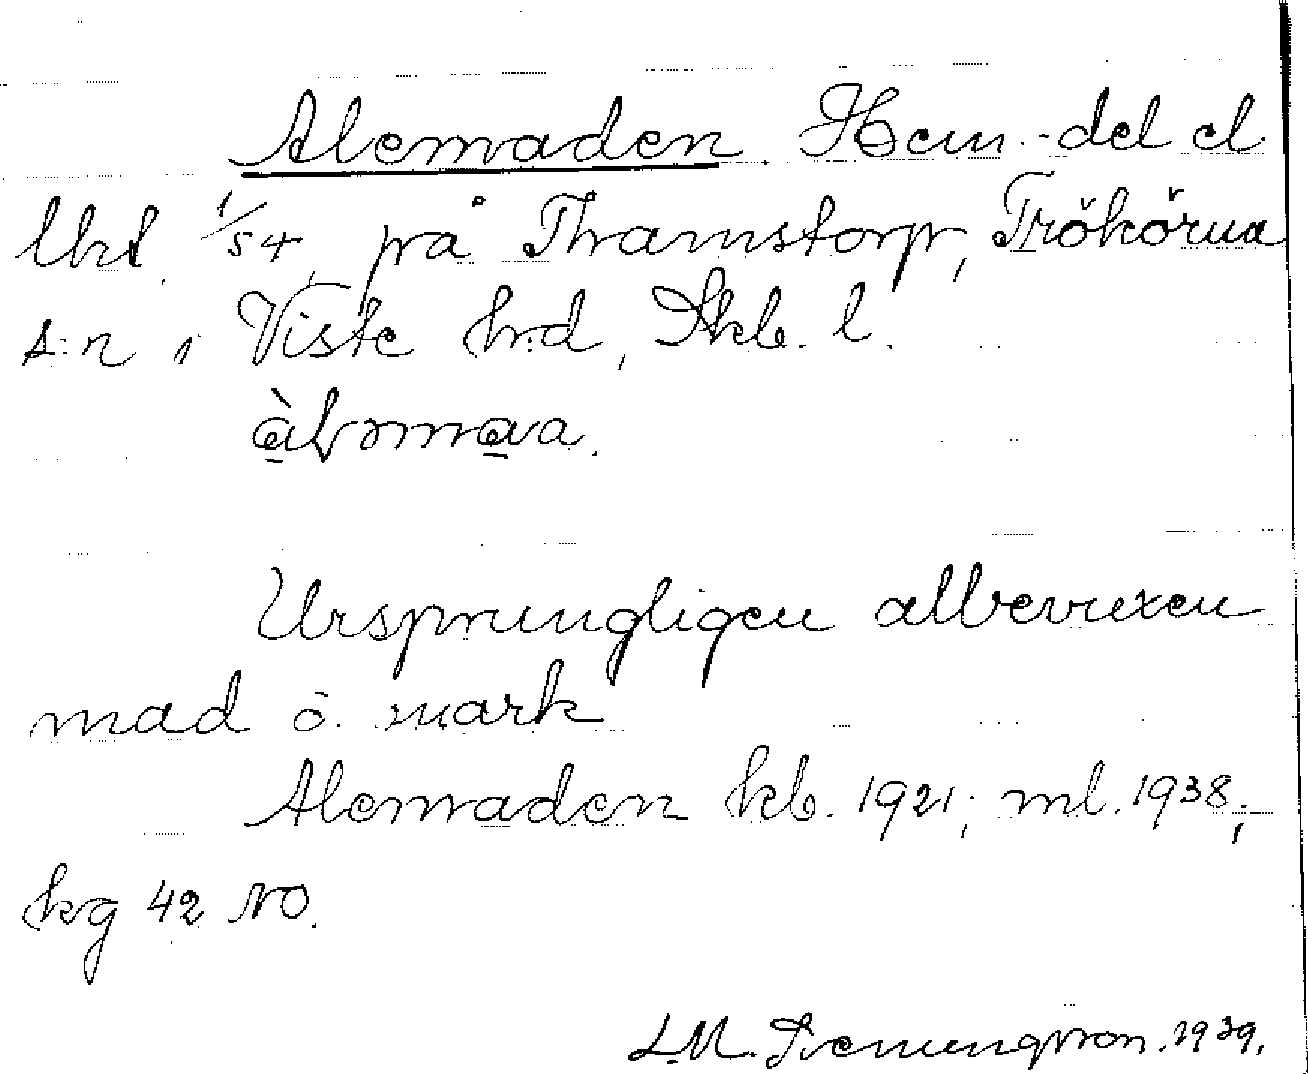 Alemaden. Hem.-del el
lht. 1/54, på Thamstorp, Trökörna
s:n i Viste hrd, Skb. l.
Ursprungligen albevuxen
mad o. mark
Alemaden kb. 1921; ml. 1938;
kg 42 NO.
L.M. 1939.